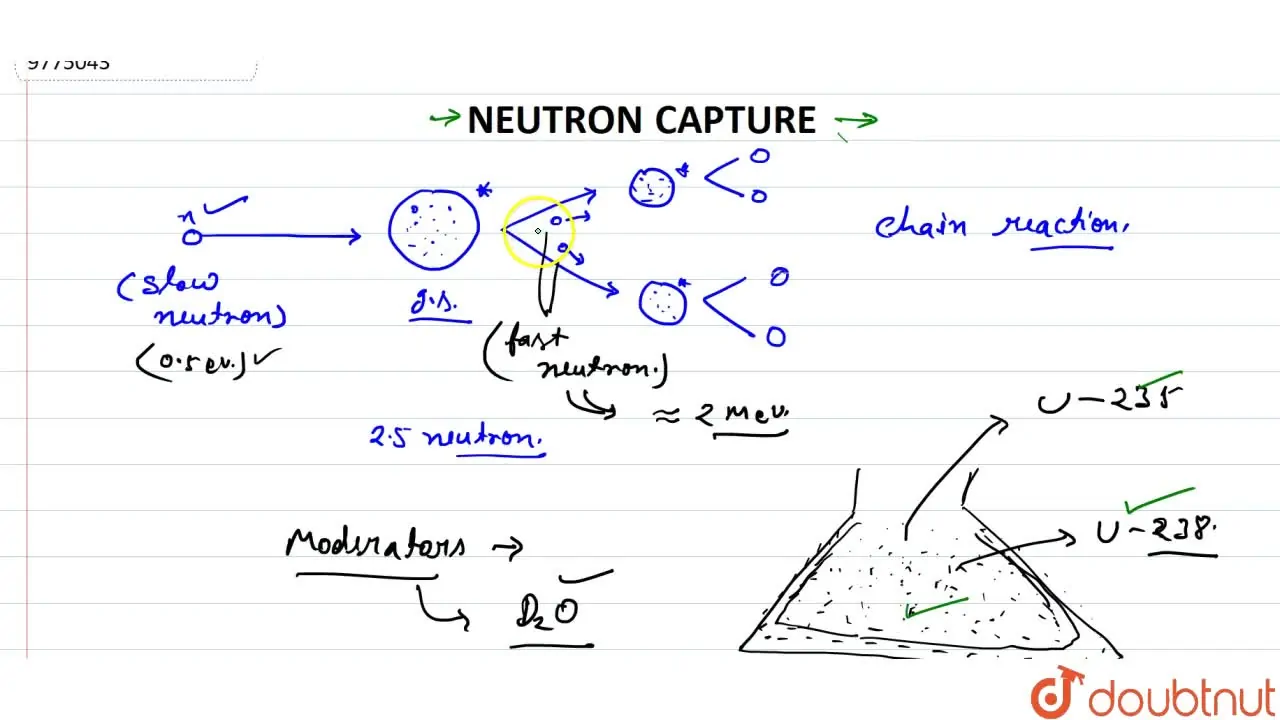 9775043
→ NEUTRON CAPTURE →
n
*
*
*
chain reaction.
(slow
neutron)
(0.5 ev.)
g.s.
(fast
neutron.)
≈ 2 Mev.
2.5 neutron.
U - 235
U - 238.
Moderators →
D₂O
doubtnut